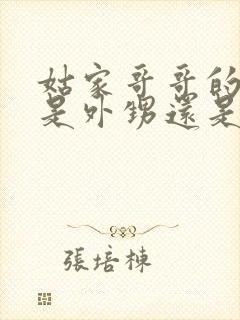 姑家哥哥的
是外甥還是
張培棟